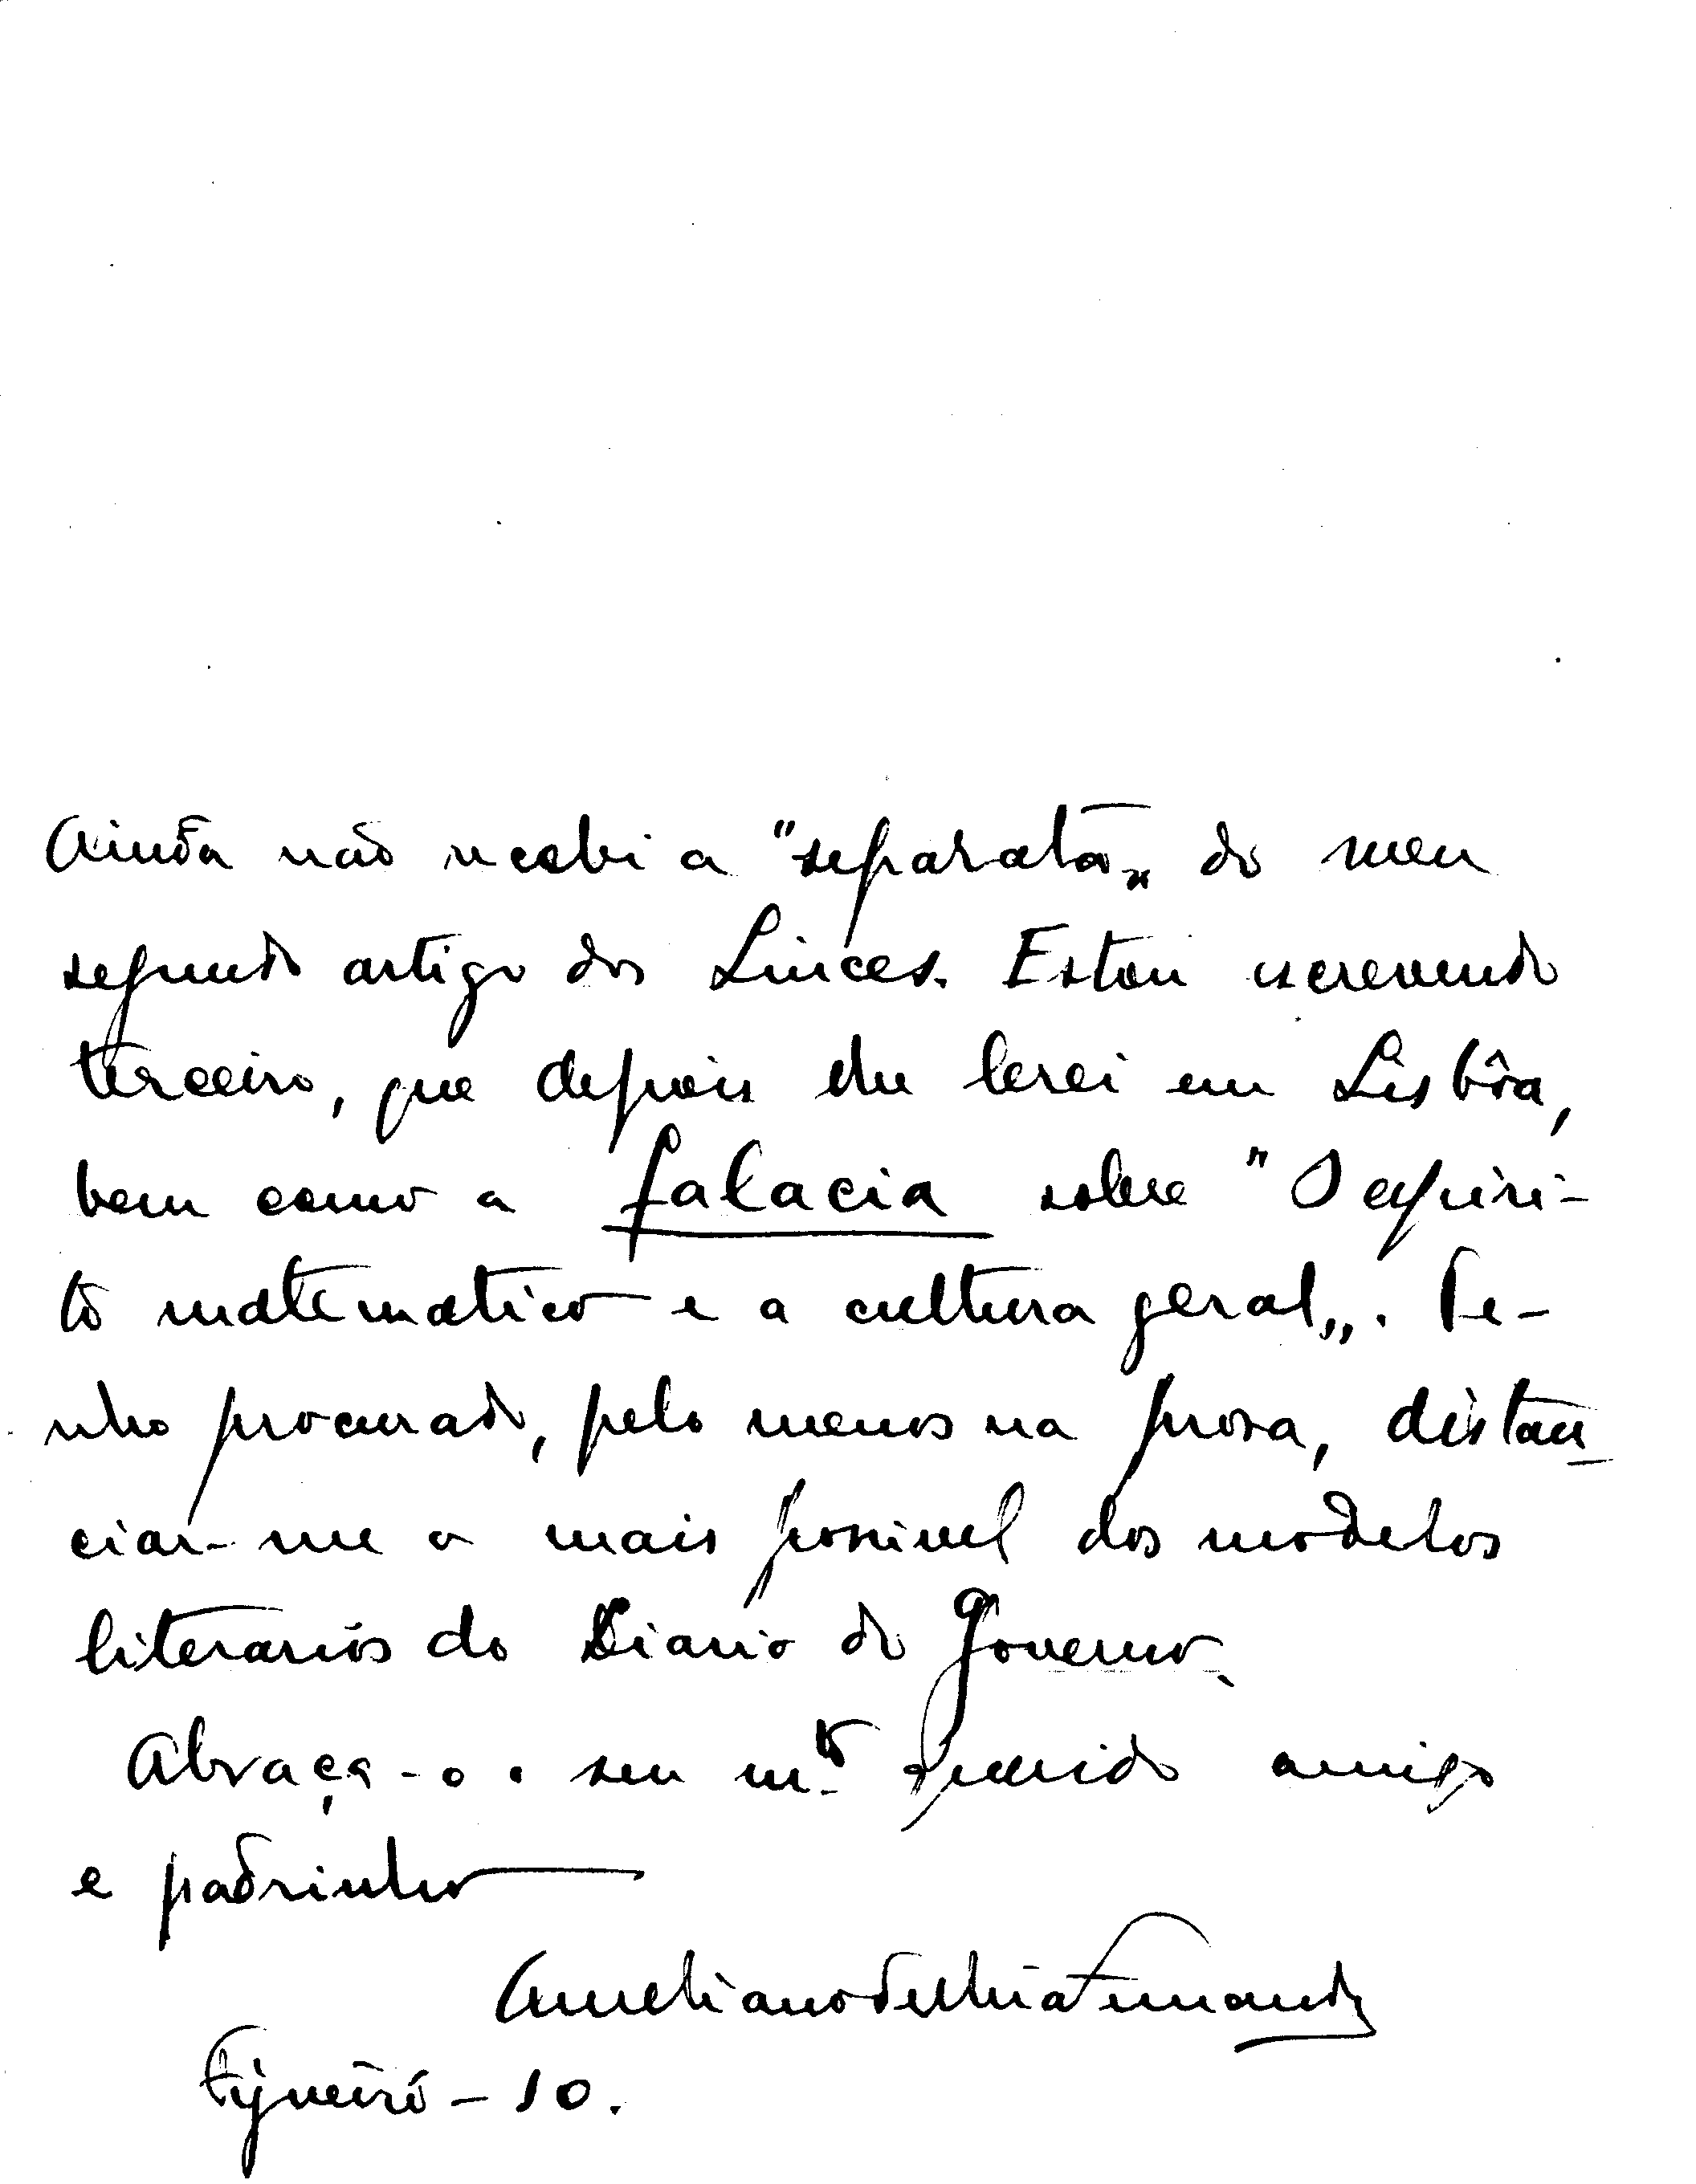 Ainda não recebi a "separata„ do meu
segundo artigo dos Linces. Estou escrevendo
terceiro, que depois lhe lerei em Lisbôa,
bem como a falacia sobre "O espiri-
to matematico e a cultura geral„. Te-
nho procurado, pelo menos na prosa, distan
ciar-me o mais possivel dos modelos
literarios do Diario do Governo.
Abraça-o o seu m.to querido amigo
e padrinho
Aureliano de Mira Fernandes
Figueiró - 10.